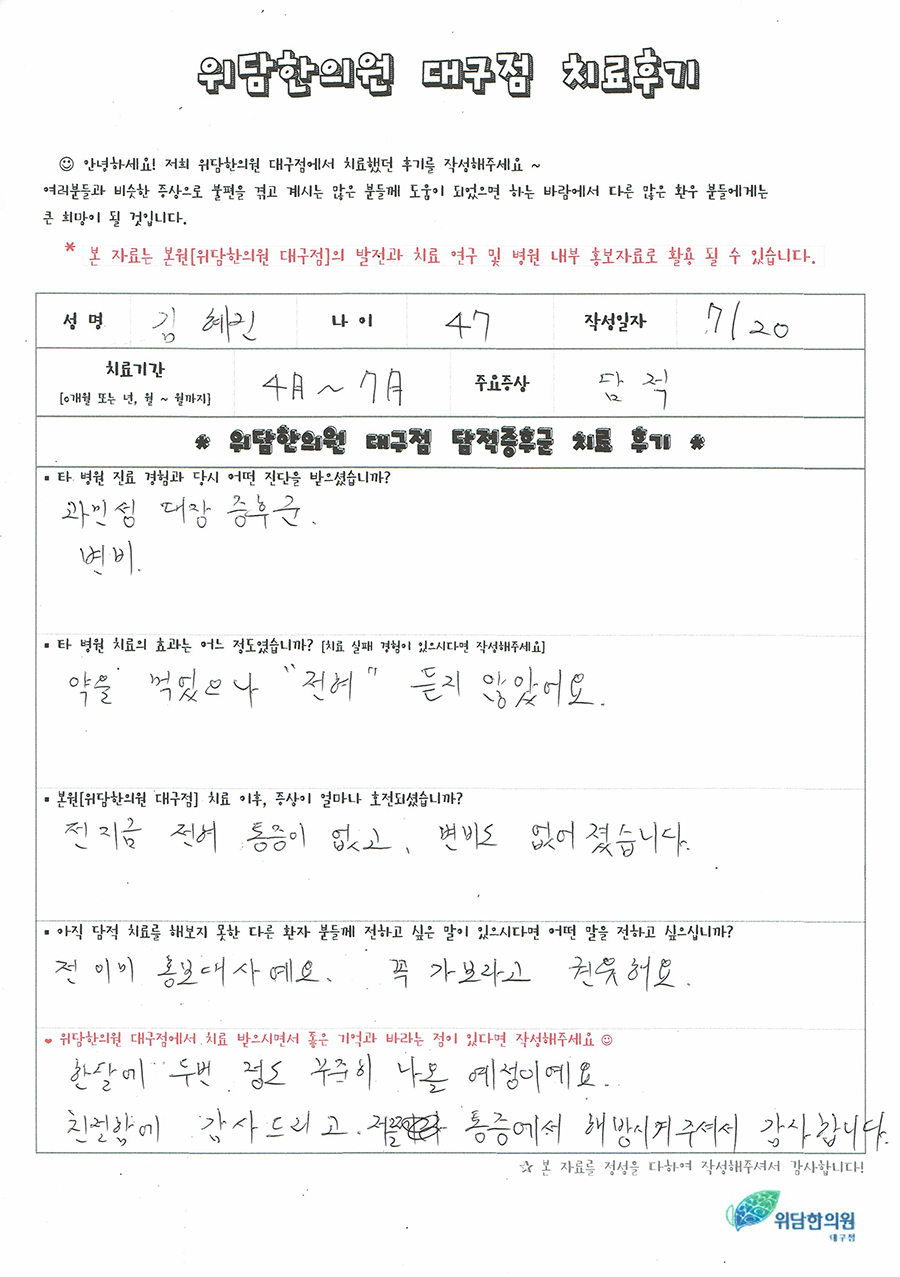 위담한의원 대구점 치료후기
☺ 안녕하세요! 저희 위담한의원 대구점에서 치료했던 후기를 작성해주세요 ~
여러분들과 비슷한 증상으로 불편을 겪고 계시는 많은 분들께 도움이 되었으면 하는 바람에서 다른 많은 환우 분들에게는
큰 희망이 될 것입니다.
* 본 자료는 본원[위담한의원 대구점]의 발전과 치료 연구 및 병원 내부 홍보자료로 활용 될 수 있습니다.
성 명 김 혜진 나 이 47 작성일자 7/20
치료기간 4月 ~ 7月 주요증상 담 적
[0개월 또는 년, 월 ~ 월까지]
* 위담한의원 대구점 담적증후군 치료 후기 *
▪ 타 병원 진료 경험과 당시 어떤 진단을 받으셨습니까?
과민성 대장 증후군.
변비.
▪ 타 병원 치료의 효과는 어느 정도였습니까? [치료 실패 경험이 있으시다면 작성해주세요]
약을 먹었으나 "전혀" 듣지 않았어요.
▪ 본원[위담한의원 대구점] 치료 이후, 증상이 얼마나 호전되셨습니까?
전 지금 전혀 통증이 없고, 변비도 없어졌습니다.
▪ 아직 담적 치료를 해보지 못한 다른 환자 분들께 전하고 싶은 말이 있으시다면 어떤 말을 전하고 싶으십니까?
전 이미 홍보대사예요. 꼭 가보라고 권유해요.
♥ 위담한의원 대구점에서 치료 받으시면서 좋은 기억과 바라는 점이 있다면 작성해주세요 ☺
한달에 두번 정도 꾸준히 나올 예정이예요.
친절함에 감사드리고. 통증에서 해방시켜주셔서 감사합니다.
☆ 본 자료를 정성을 다하여 작성해주셔서 감사합니다!
위담한의원
대구점